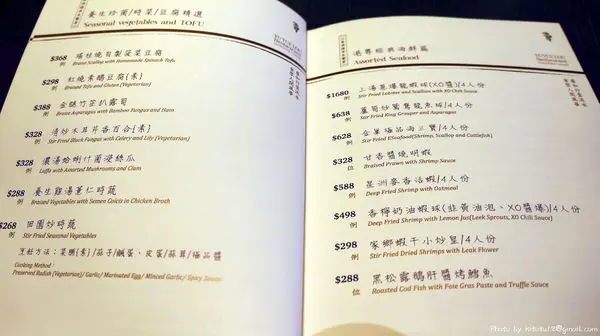 養生珍菌/時菜/豆腐精選
Seasonal vegetables and TOFU
$368 瑤柱燒自製菠菜豆腐
例 Braise Scallop with Homemade Spinach Tofu
$298 紅燒素腸豆腐{素}
例 Braised Tofu and Gluten (Vegetarian)
$388 金腿竹笙扒露筍
例 Braise Asparagus with Bamboo Fungus and Ham
$328 清炒木耳芹香百合{素}
例 Stir Fried Black Fungus with Celery and Lily (Vegetarian)
$328 濃湯蛤蜊什菌浸絲瓜
例 Luffa with Assorted Mushrooms and Clam
$288 養生雞湯薏仁時蔬
例 Braised Vegetables with Semen Coicis in Chicken Broth
$268 田園炒時蔬
例 Stir Fried Seasonal Vegetables
烹飪方法:菜脯{素}/蒜子/鹹蛋、皮蛋/蒜茸/極品醬
Cooking Method :
Preserved Radish (Vegetarian)/ Garlic/ Marinated Egg/ Minced Garlic/ Spicy Sauce
港粵經典海鮮篇
Assorted Seafood
$1680 上湯蔥爆龍蝦球(XO醬)/4人份
例 Stir Fried Lobster and Scallion with XO Chili Sauce
$638 蘆筍炒鴛鴦龍魚球/4人份
例 Stir Fried King Grouper and Asparagus
$628 合巢極品海三寶/4人份
例 Stir Fried ESeafood(Shrimp, Scallop and Cuttlefish)
$328 甘香醬燒明蝦
位 Braised Prawn with Shrimp Sauce
$588 星洲麥香活蝦/4人份
例 Deep Fried Shrimp with Oatmeal
$498 香檸奶油蝦球(韭黃油泡、XO醬爆)/4人份
例 Deep Fried Shrimp with Lemon Jus(Leek Sprouts, XO Chili Sauce)
$298 家鄉蝦干小炒皇/4人份
例 Stir Fried Dried Shrimps with Leak Flower
$288 黑松露鵝肝醬烤鱈魚
位 Roasted Cod Fish with Foie Gras Paste and Truffle Sauce